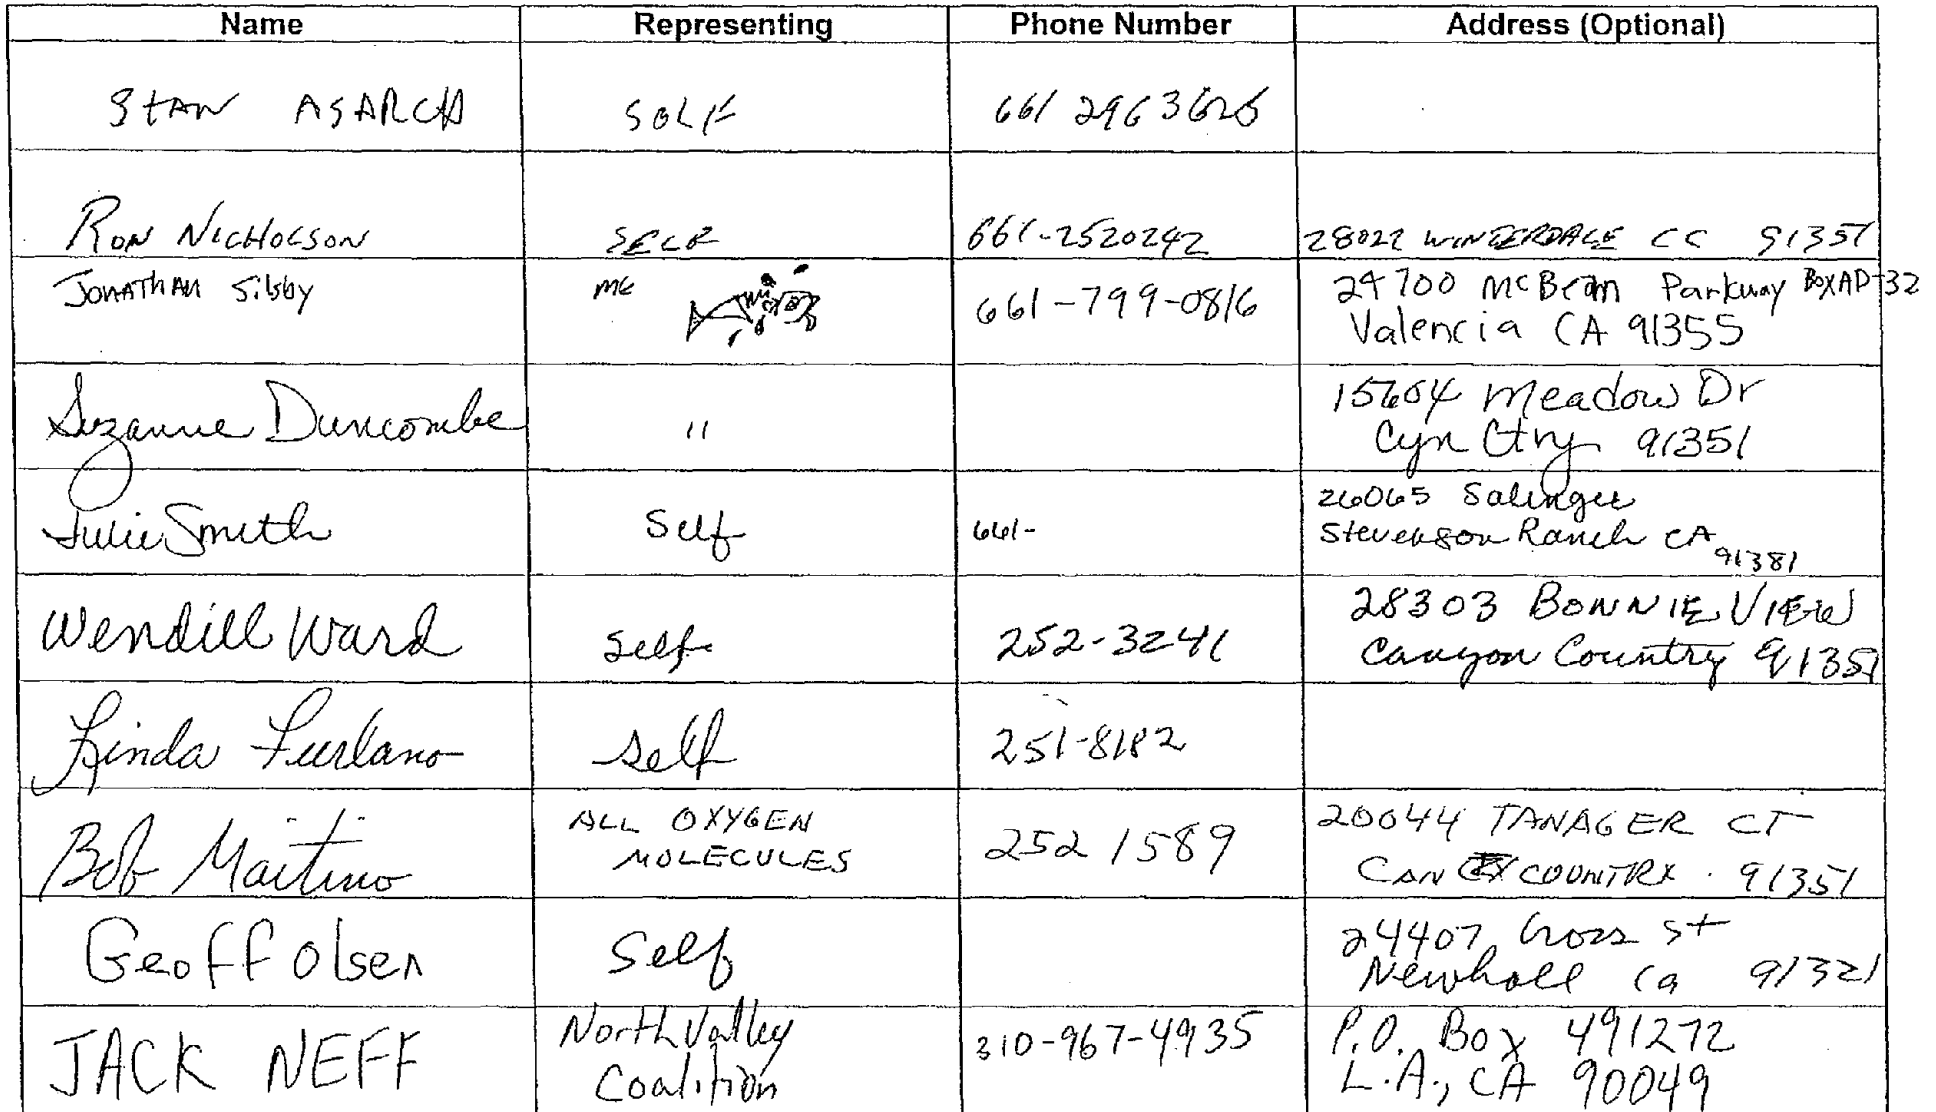 Name Representing Phone Number Address (Optional)
STAN ASARCH SELF 661 296 3626
RON NICHOLSON SELF 661-2520242 28022 WINTERDALE CC 91351
JONATHAN Silsby ME 661-799-0816 24700 McBean Parkway BOX AD-32
Valencia CA 91355
Suzanne Duncombe " 15604 Meadow Dr
Cyn Ctry 91351
Julie Smith Self 661- 26065 Salinger
Stevenson Ranch CA 91381
Wendill Ward self 252-3241 28303 BONNIE VIEW
Canyon Country 91351
Linda Furlano self 251-8182
Bob Martino ALL OXYGEN MOLECULES 252 1589 20044 TANAGER CT
CAN COUNTRY 91351
Geoff Olsen Self 24407 Cross St
Newhall Ca 91321
JACK NEFF North Valley Coalition 310-967-4935 P.O. Box 491272
L.A., CA 90049